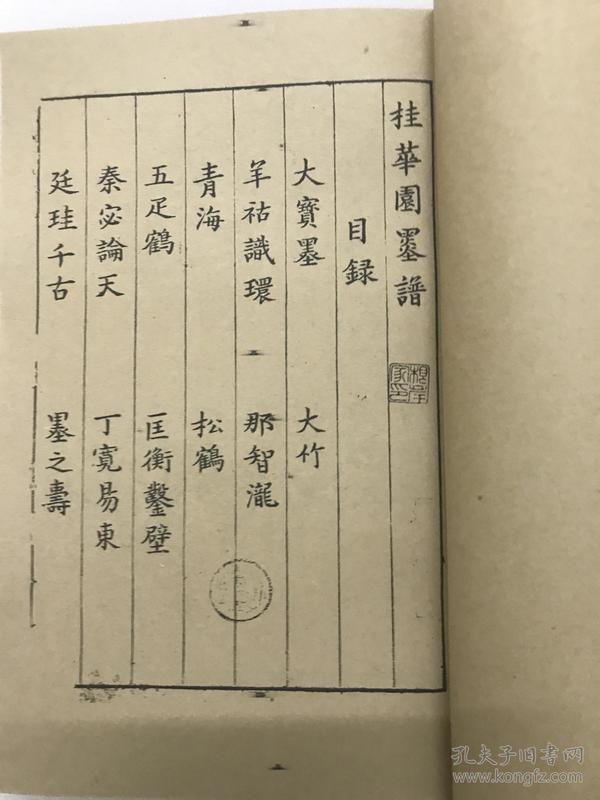 桂華園墨譜
目録
大寶墨 大竹
羊祜識環 那智瀧
青海 松鶴
五疋鶴 匡衡鑿壁
秦宓論天 丁寬易東
廷珪千古 墨之壽
孔夫子旧书网
www.kongfz.com